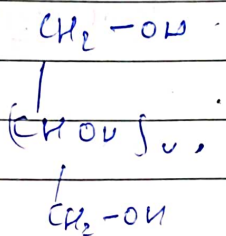 CH₂ - OH
(CHOH)ᵤ,
CH₂ - OH